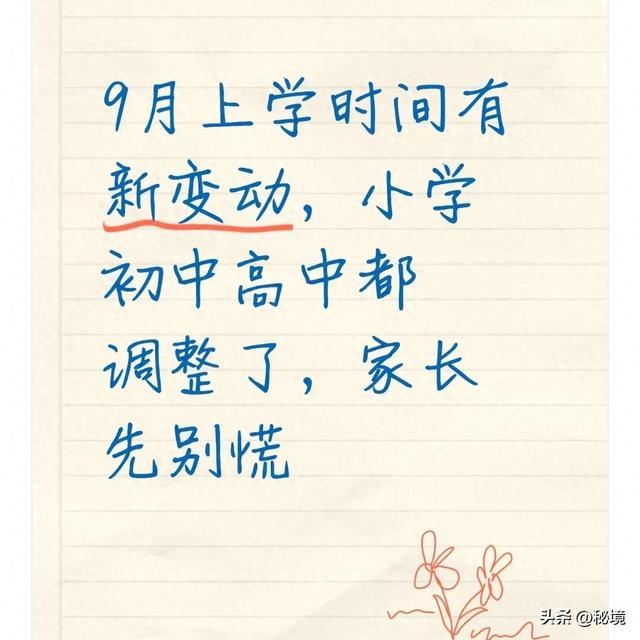 9月上学时间有
新变动，小学
初中高中都
调整了，家长
先别慌
头条 @秘境